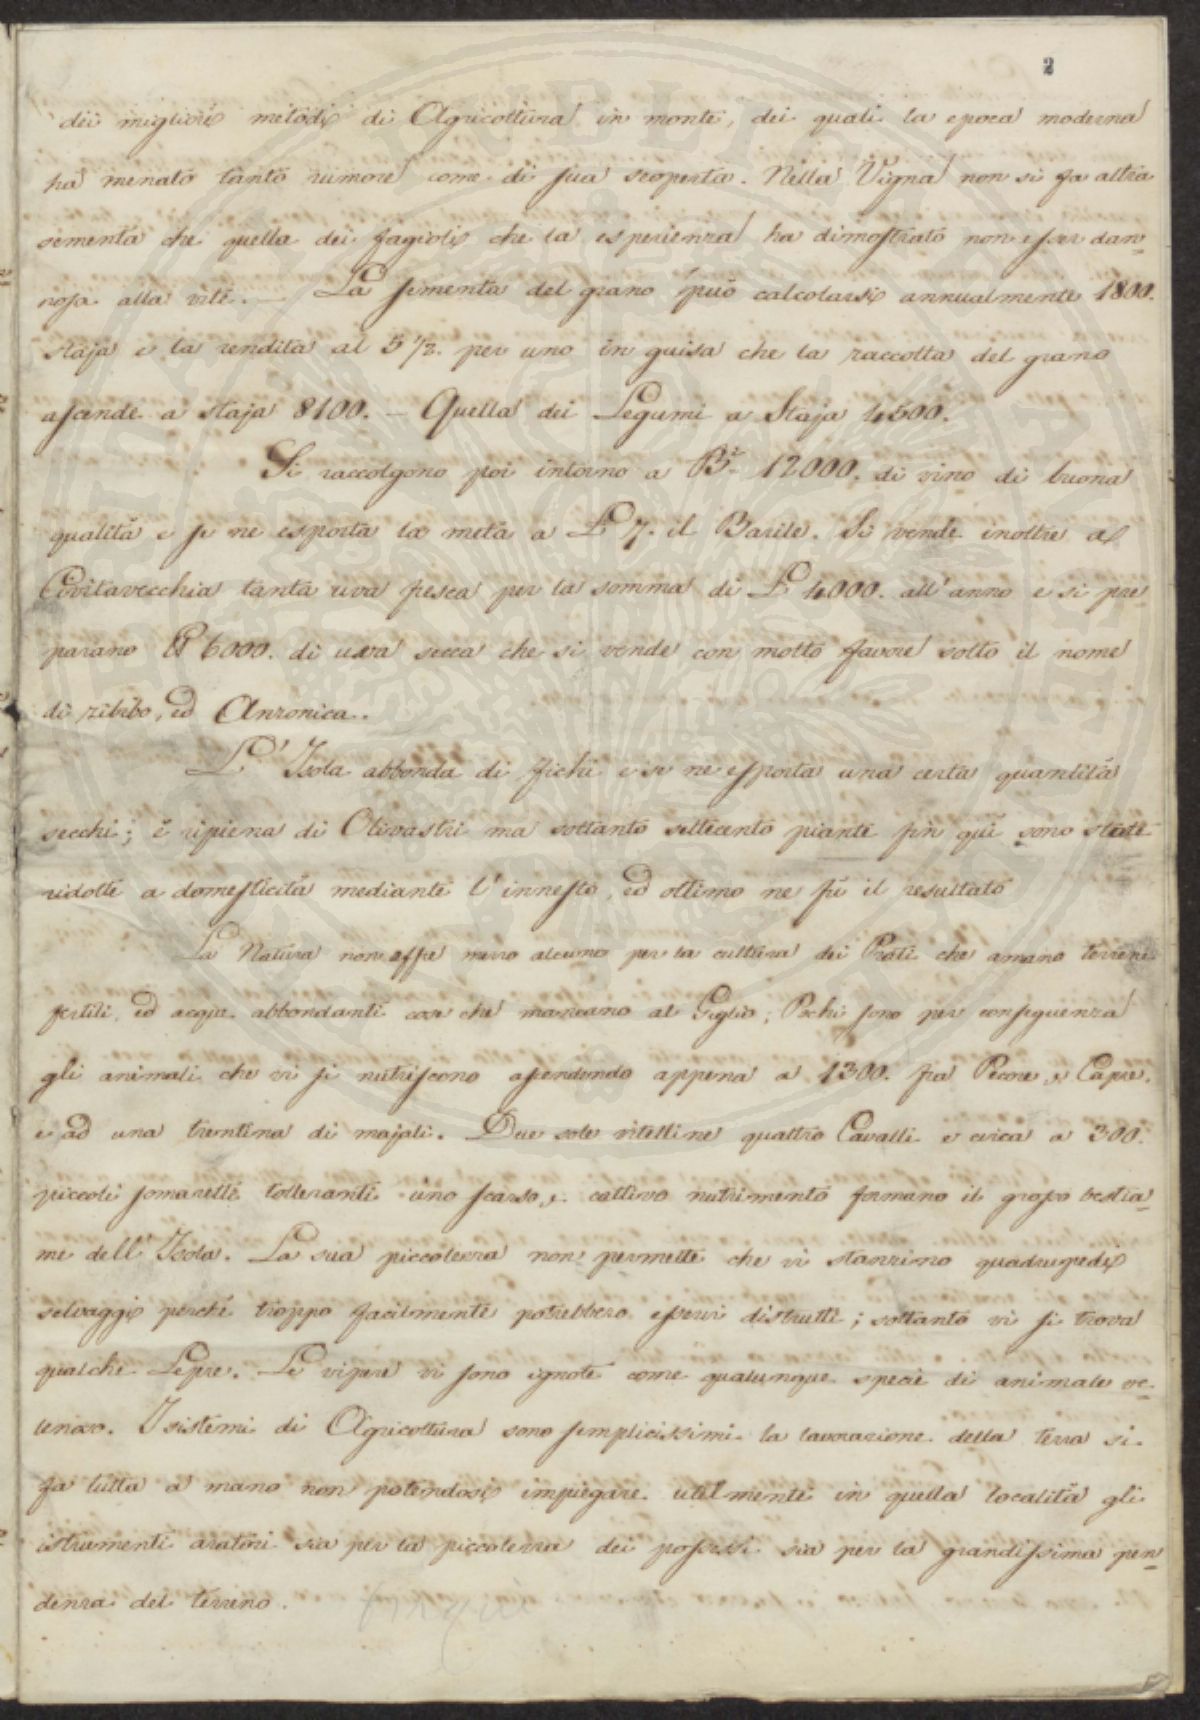 2
dei migliori metodi di Agricoltura in monte, dei quali la epoca moderna
ha menato tanto rumore come di sua scoperta. Nella Vigna non si fa altra
sementa che quella dei fagioli che la esperienza ha dimostrato non esser dan-
nosa alla vite. — La sementa del grano può calcolarsi annualmente 1800.
staja e la rendita al 5 1/2. per uno in guisa che la raccolta del grano
ascende a staja 8100. — Quella dei Legumi a Staja 4500.
Si raccolgono poi intorno a B.i 12000. di vino di buona
qualità e se ne esporta la metà a L 7. il Barile. Si vende inoltre a
Civitavecchia tanta uva fresca per la somma di L 4000. all'anno e si pre
parano 6000. di uva secca che si vende con molto favore sotto il nome
di zibibo, ed Anzonica.
L' Isola abbonda di fichi e se ne esporta una certa quantità
secchi; è ripiena di Olivastri ma soltanto settecento piante fin quì sono state
ridotte a domesticità mediante l'innesto, ed ottimo ne fù il resultato
La Natura non offre mezzo alcuno per la cultura dei Prati che amano terreni
fertili, ed acque abbondanti cose che mancano al Giglio; Pochi sono per conseguenza
gli animali che vi si nutriscono ascendendo appena a 1300. fra Pecore, e Capre.
e ad una trentina di majali. Due sole vitelline quattro Cavalli e circa a 300.
piccoli somarelli tolleranti uno scarso, e cattivo nutrimento formano il grosso bestia-
me dell' Isola. La sua piccolezza non permette che vi stanzino quadrupedi
selvaggi perché troppo facilmente potrebbero esservi distrutti; soltanto vi si trova
qualche Lepre. Le vipere vi sono ignote come qualunque specie di animale ve-
lenoso. I sistemi di Agricoltura sono semplicissimi la lavorazione della terra si
fa tutta a mano non potendosi impiegare utilmente in quella località gli
istrumenti aratori sia per la piccolezza dei possessi sia per la grandissima pen-
denza del terreno.